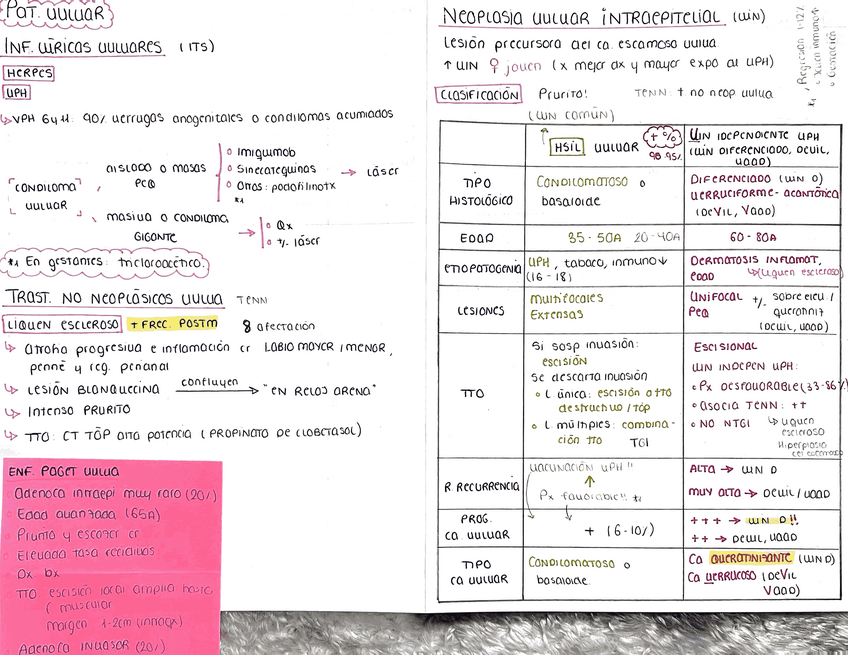 PAT. VULVAR
INF. VÍRICAS VULVARES (ITS)
HERPES
VPH
↳ VPH 6 y 11: 90% verrugas anogenitales o condilomas acumiados
"CONDILOMA VULVAR"
AISLADO O MASAS PEQ
• Imiquimob
• Sinecatequinas
• Otros: podofilinotx
*1
→ Láser
MASIVA O CONDILOMA GIGANTE
→ • Qx
• +/- láser
*1 En gestantes: tricloroacético.
TRAST. NO NEOPLÁSICOS VULVA TENN
LIQUEN ESCLEROSO + FREC. POSTM 8 afectación
↳ Atrofia progresiva e inflamación cr LABIO MAYOR / MENOR,
periné y reg. perianal
↳ LESIÓN BLANQUECINA confluyen → "EN RELOJ ARENA"
↳ Intenso PRURITO
↳ TTO: CT TÓP alta potencia (PROPINATO DE CLOBETASOL)
ENF. PAGET VULVA
• Adenoca intraepi muy raro (20%)
• Edad avanzada (65A)
• Prurito y escozor cr
• Elevada tasa recidivas
• Dx bx
• TTO escisión local amplia hasta
( muscular
margen 1-2cm (innecx)
• Adenoca INVASOR (20%)
NEOPLASIA VULVAR INTRAEPITELIAL (VIN)
Lesión precursora del ca. escamoso vulva
↑ VIN ♀ joven (x mejor dx y mayor expo al VPH)
*1 / Regresión 1-12%
• Joven inmunoc
• Gestación
CLASIFICACIÓN Prurito! TENN: + no neop vulva
(VIN común)
HSIL VULVAR + % 90-95%
VIN IDEPENDIENTE VPH
(VIN DIFERENCIADO, DEVIL,
VAAD)
TIPO HISTOLÓGICO
CONDILOMATOSO o
basaloide
DIFERENCIADO (VIN D)
VERRUCIFORME-ACANTÓTICA
(DEVIL, VAAD)
EDAD
35-50A 20-40A
60-80A
ETIOPATOGENIA
VPH, tabaco, inmuno↓
(16-18)
DERMATOSIS INFLAMAT,
EDAD ↳(Liquen escleroso)
LESIONES
Multifocales
Extensas
UNIFOCAL
PEQ
+/- sobreelev /
queratiniz
(DEVIL, VAAD)
TTO
Si sosp invasión:
escisión
Se descarta invasión
• L única: escisión o tto
destructivo / tóp
• L múltiples: combina-
ción tto TGI
ESCISIONAL
VIN INDEPEN VPH:
• Px DESFAVORABLE (33-86%)
• ASOCIA TENN: ++
• NO NTGI
↳ Liquen
escleroso
Hiperplasia
cel escamosa
R. RECURRENCIA
VACUNACIÓN VPH!!
↑
Px favorable!! *1
ALTA → VIN D
MUY ALTA → DEVIL / VAAD
PROG. CA VULVAR
+ (6-10%)
+++ → VIN D!!
++ → DEVIL, VAAD
TIPO CA VULVAR
CONDILOMATOSO o
basaloide.
Ca QUERATINIZANTE (VIN D)
Ca VERRUCOSO (DEVIL
VAAD)